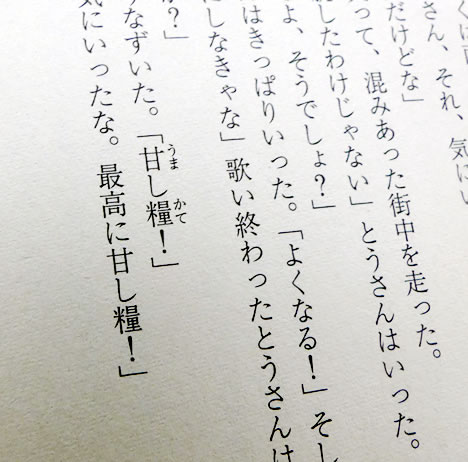 くは
さん、それ、気にい
だけどな」
って、混みあった街中を走った。
したわけじゃない」とうさんはいった。
よ、そうでしょ？」
はきっぱりいった。「よくなる！」そし
にしなきゃな」歌い終わったとうさんは
か？」
なずいた。「甘し糧！」
うま かて
気にいったな。最高に甘し糧！」